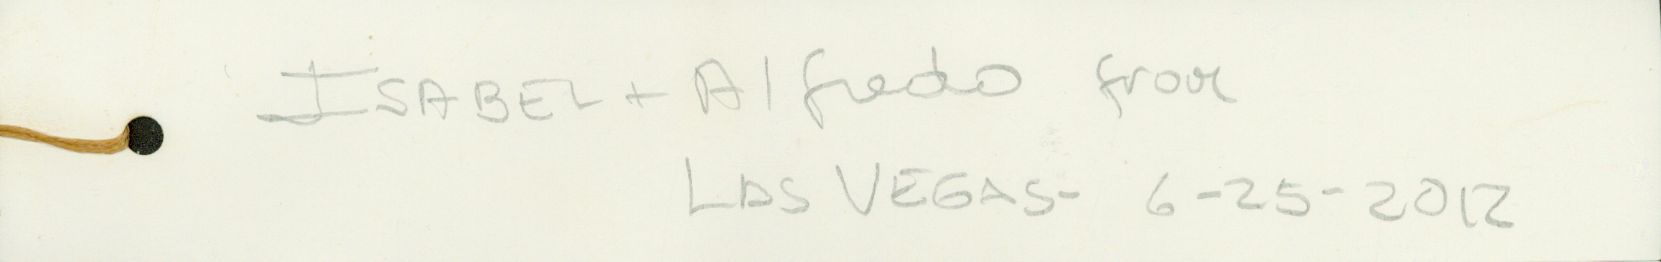 ISABEL + Alfredo from
LAS VEGAS- 6-25-2012